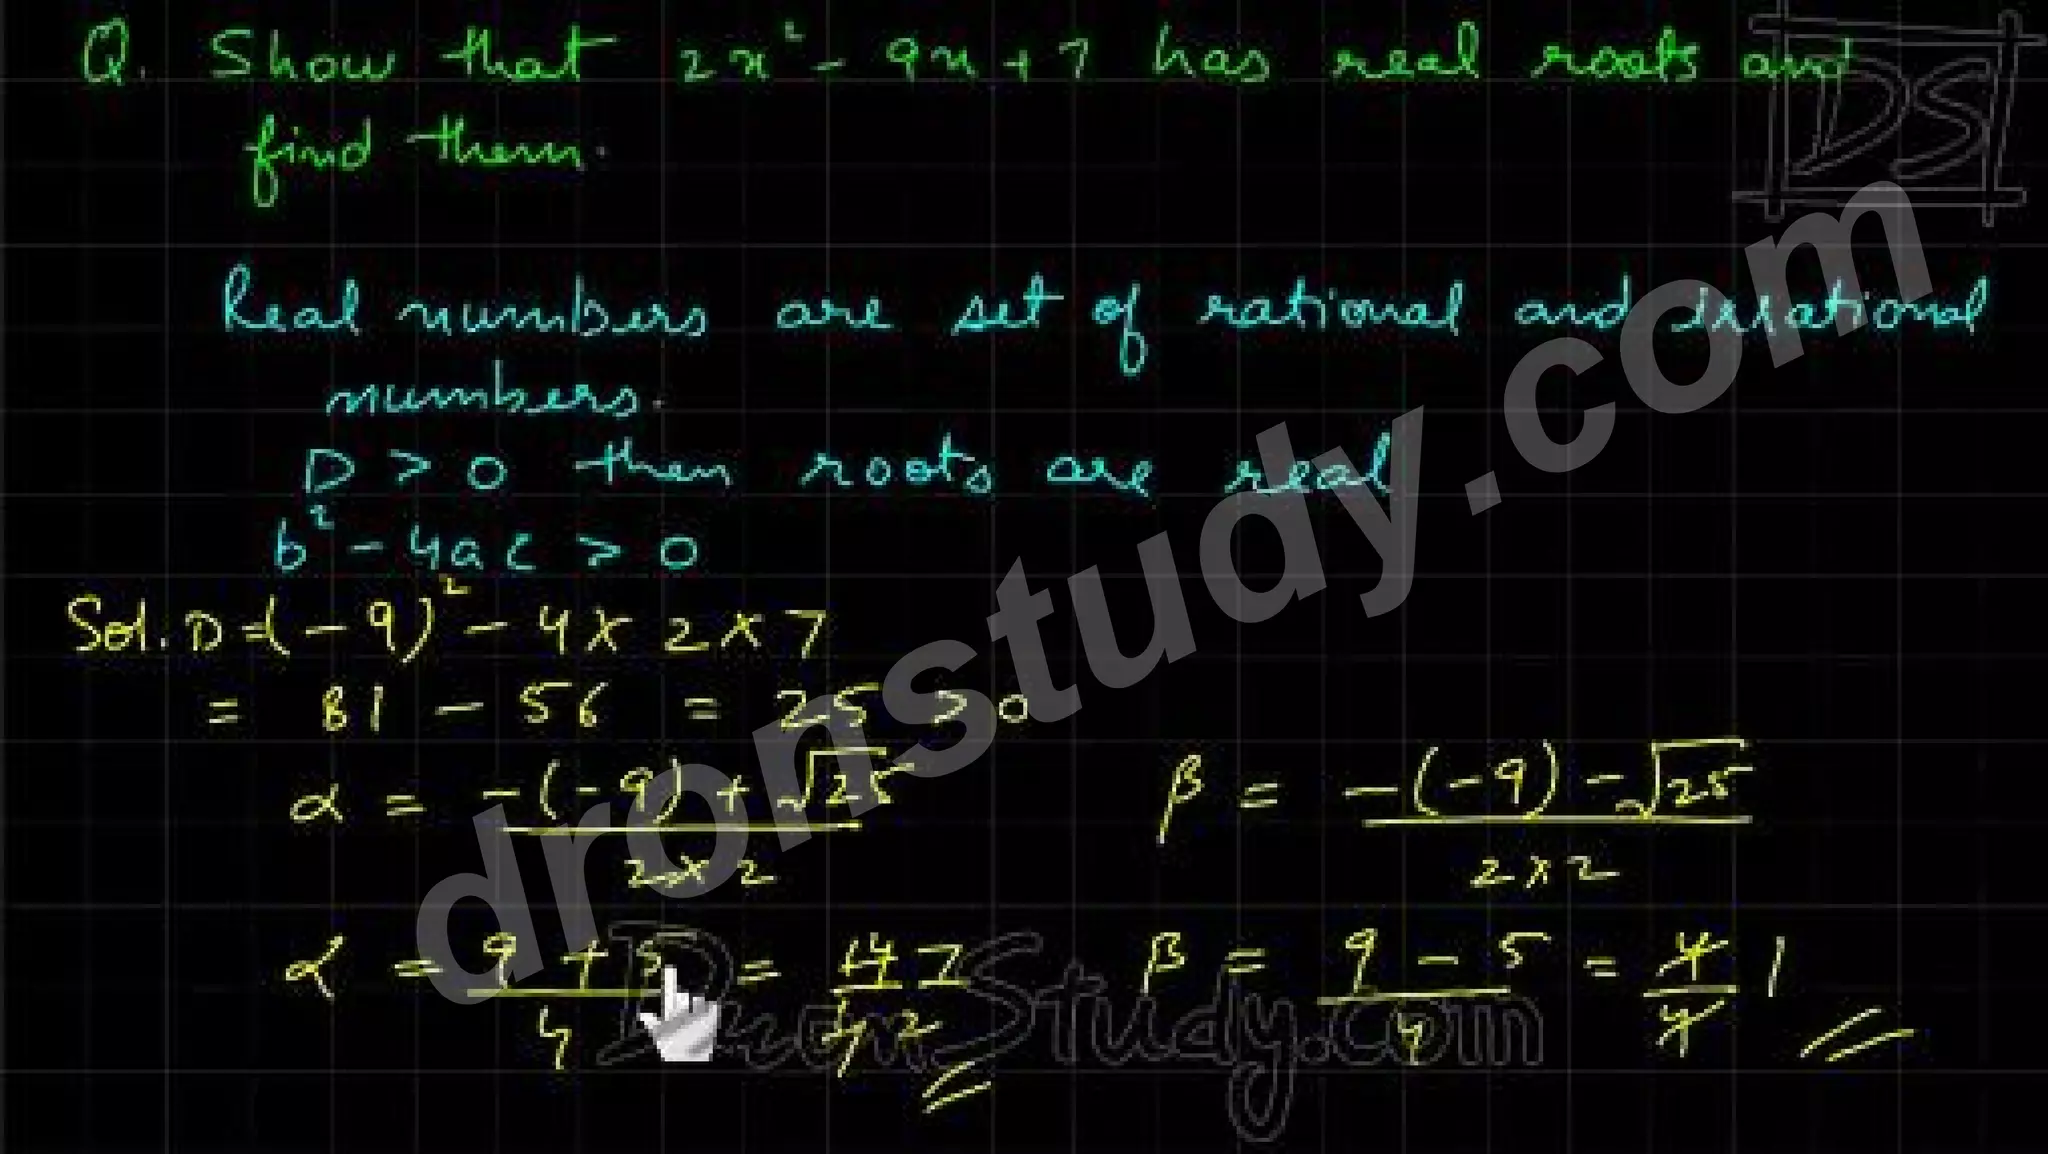 Q. Show that 2x² - 9x + 7 has real roots and
find them.
DS
Real numbers are set of rational and irrational
numbers.
D > 0 then roots are real
b² - 4ac > 0
Sol. D = (-9)² - 4 × 2 × 7
= 81 - 56 = 25 > 0
α = -(-9) + √25 / 2×2    β = -(-9) - √25 / 2×2
α = 9 + 5 / 4 = 14 / 4 7 / 2    β = 9 - 5 / 4 = 4 / 4 1
dronstudy.com
DronStudy.com